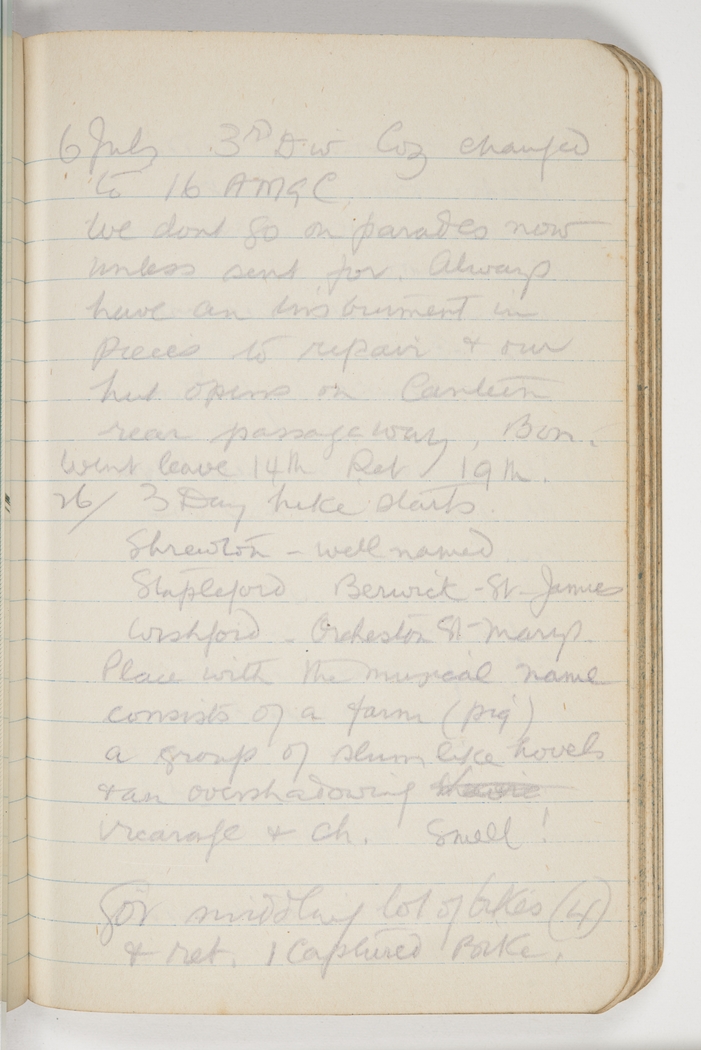 6 July 3rd Div Coy changed
to 16 AMGC.
We dont go on parades now
unless sent for. Always
have an instrument in
pieces to repair & our
hut opens on Canteen
rear passageway, Bon.
Went leave 14th Ret 19th.
26/ 3 Day hike starts.
Shrewton - well named
Stapleford Berwick-St-James
Wishford - Orcheston St-Marys.
Place with the musical name
consists of a farm (pig)
a group of slum like hovels
& an overshadowing
vicarage & ch. Smell!
Got middling lot of bikes (4)
& ret. 1 Captured Bike.